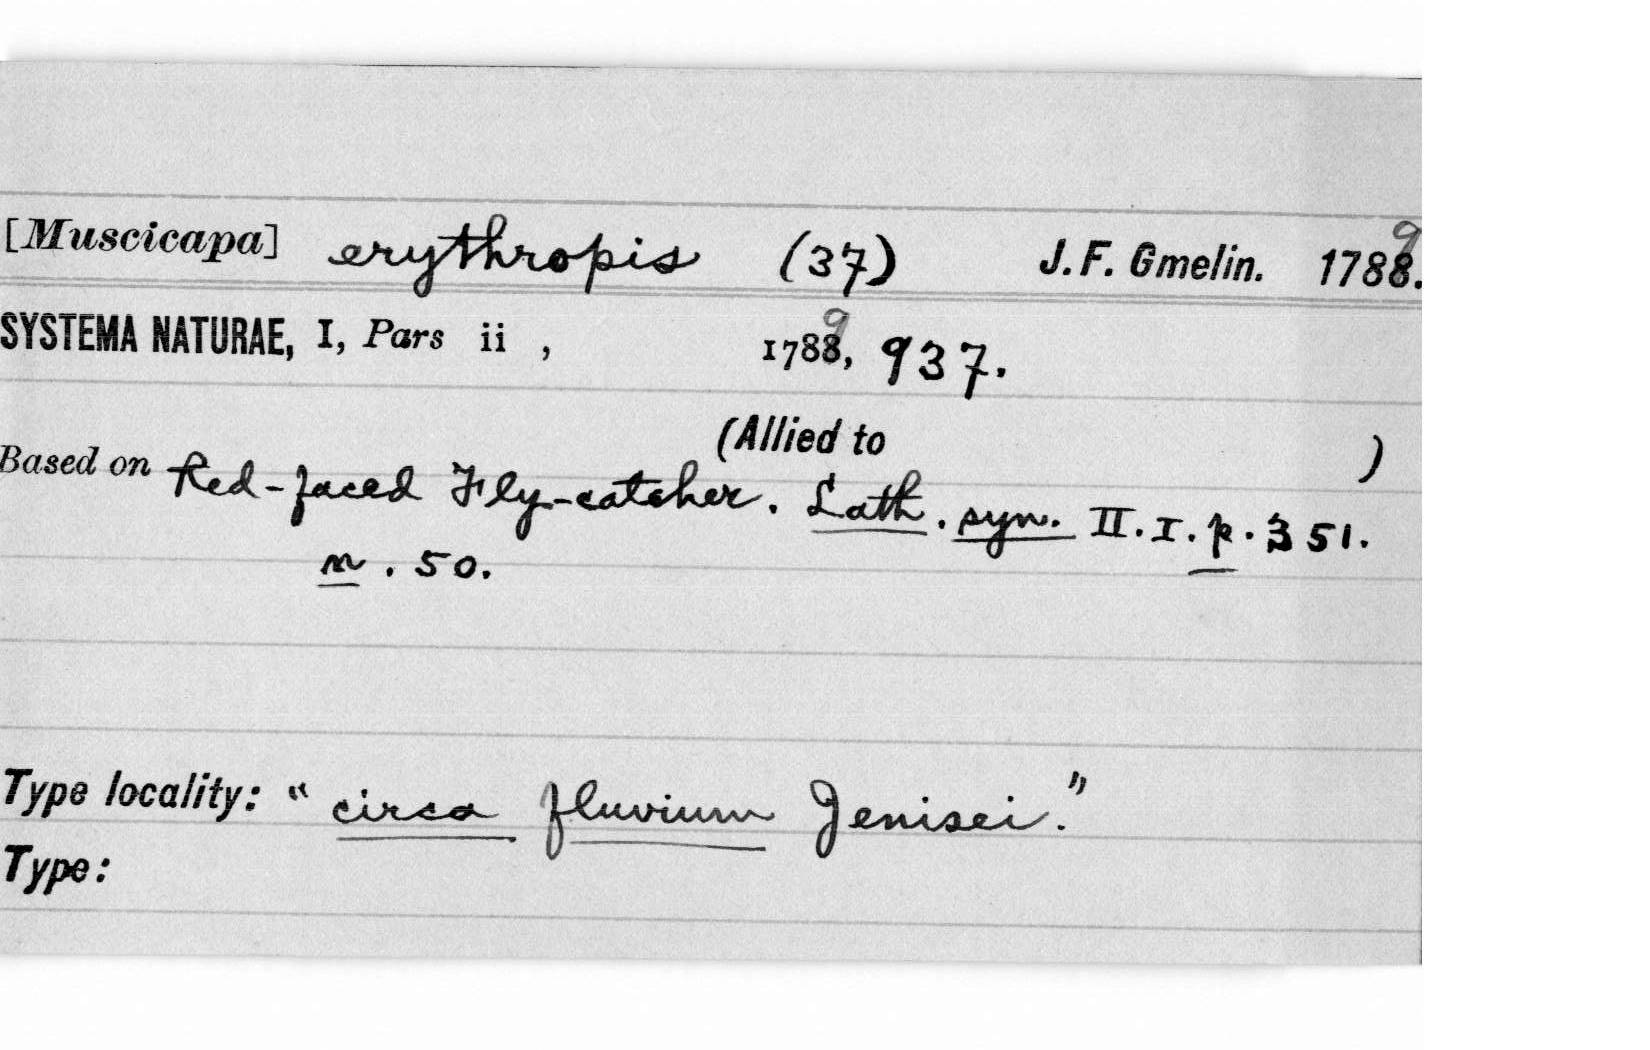 [Muscicapa] erythropis (37) J.F. Gmelin. 1788. 9
SYSTEMA NATURAE, I, Pars ii , 1788, 9 937.
(Allied to )
Based on Red-faced Fly-catcher. Lath. syn. II.I.p.351.
n. 50.
Type locality: "circa fluvium Jenisei."
Type: